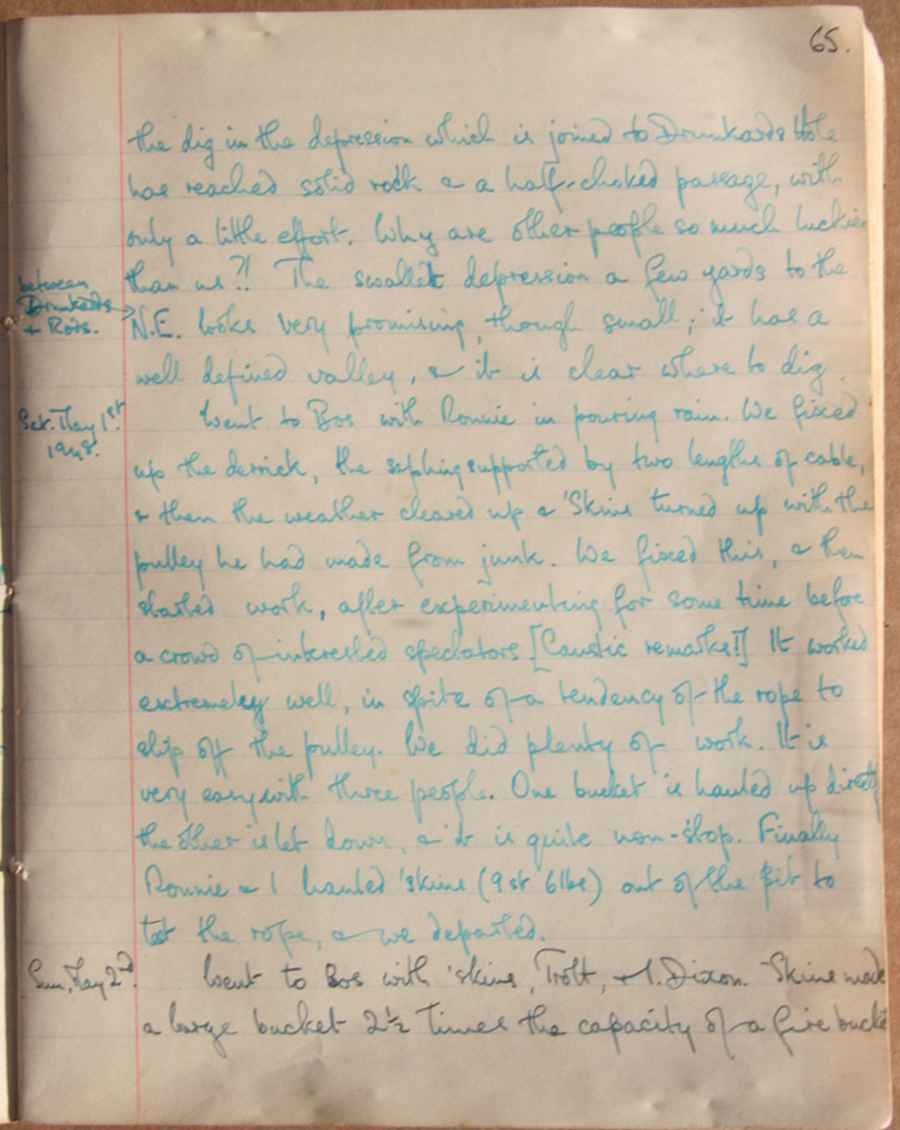 65.
the dig in the depression which is joined to Drunkards Hole
has reached solid rock & a half-choked passage, with
only a little effort. Why are other people so much luckier
than us?! The swallet depression a few yards to the
between
Drunkards
+ Rods.
N.E. looks very promising, though small; it has a
well defined valley, & it is clear where to dig.
Sat. May 1st
1948.
Went to Bos with Ronnie in pouring rain. We fixed
up the derrick, the supported by two lengths of cable,
& then the weather cleared up & 'Skins turned up with the
pulley he had made from junk. We fixed this, & then
started work, after experimenting for some time before
a crowd of interested spectators [Caustic remarks!!] It worked
extremeley well, in spite of a tendency of the rope to
slip off the pulley. We did plenty of work. It is
very easy with three people. One bucket is hauled up directly
the other is let down, & it is quite non-stop. Finally
Ronnie & I hauled 'skins (9 st 6lbs) out of the pit to
test the rope, & we departed.
Sun, May 2nd.
Went to Bos with 'skins, Trott, + Dixon. 'Skins made
a large bucket 2½ times the capacity of a fire bucke